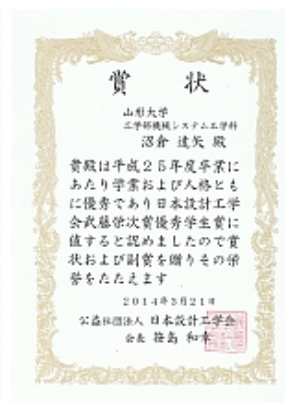 賞状
山形大学
工学部機械システム工学科
沼倉 達矢 殿
貴殿は平成25年度卒業に
あたり学業および人格とも
に優秀であり日本設計工学
会武藤栄次賞優秀学生賞に
値すると認めましたので賞
状および副賞を贈りその栄
誉をたたえます
2014年3月21日
公益社団法人 日本設計工学会
会長 笹島 和幸